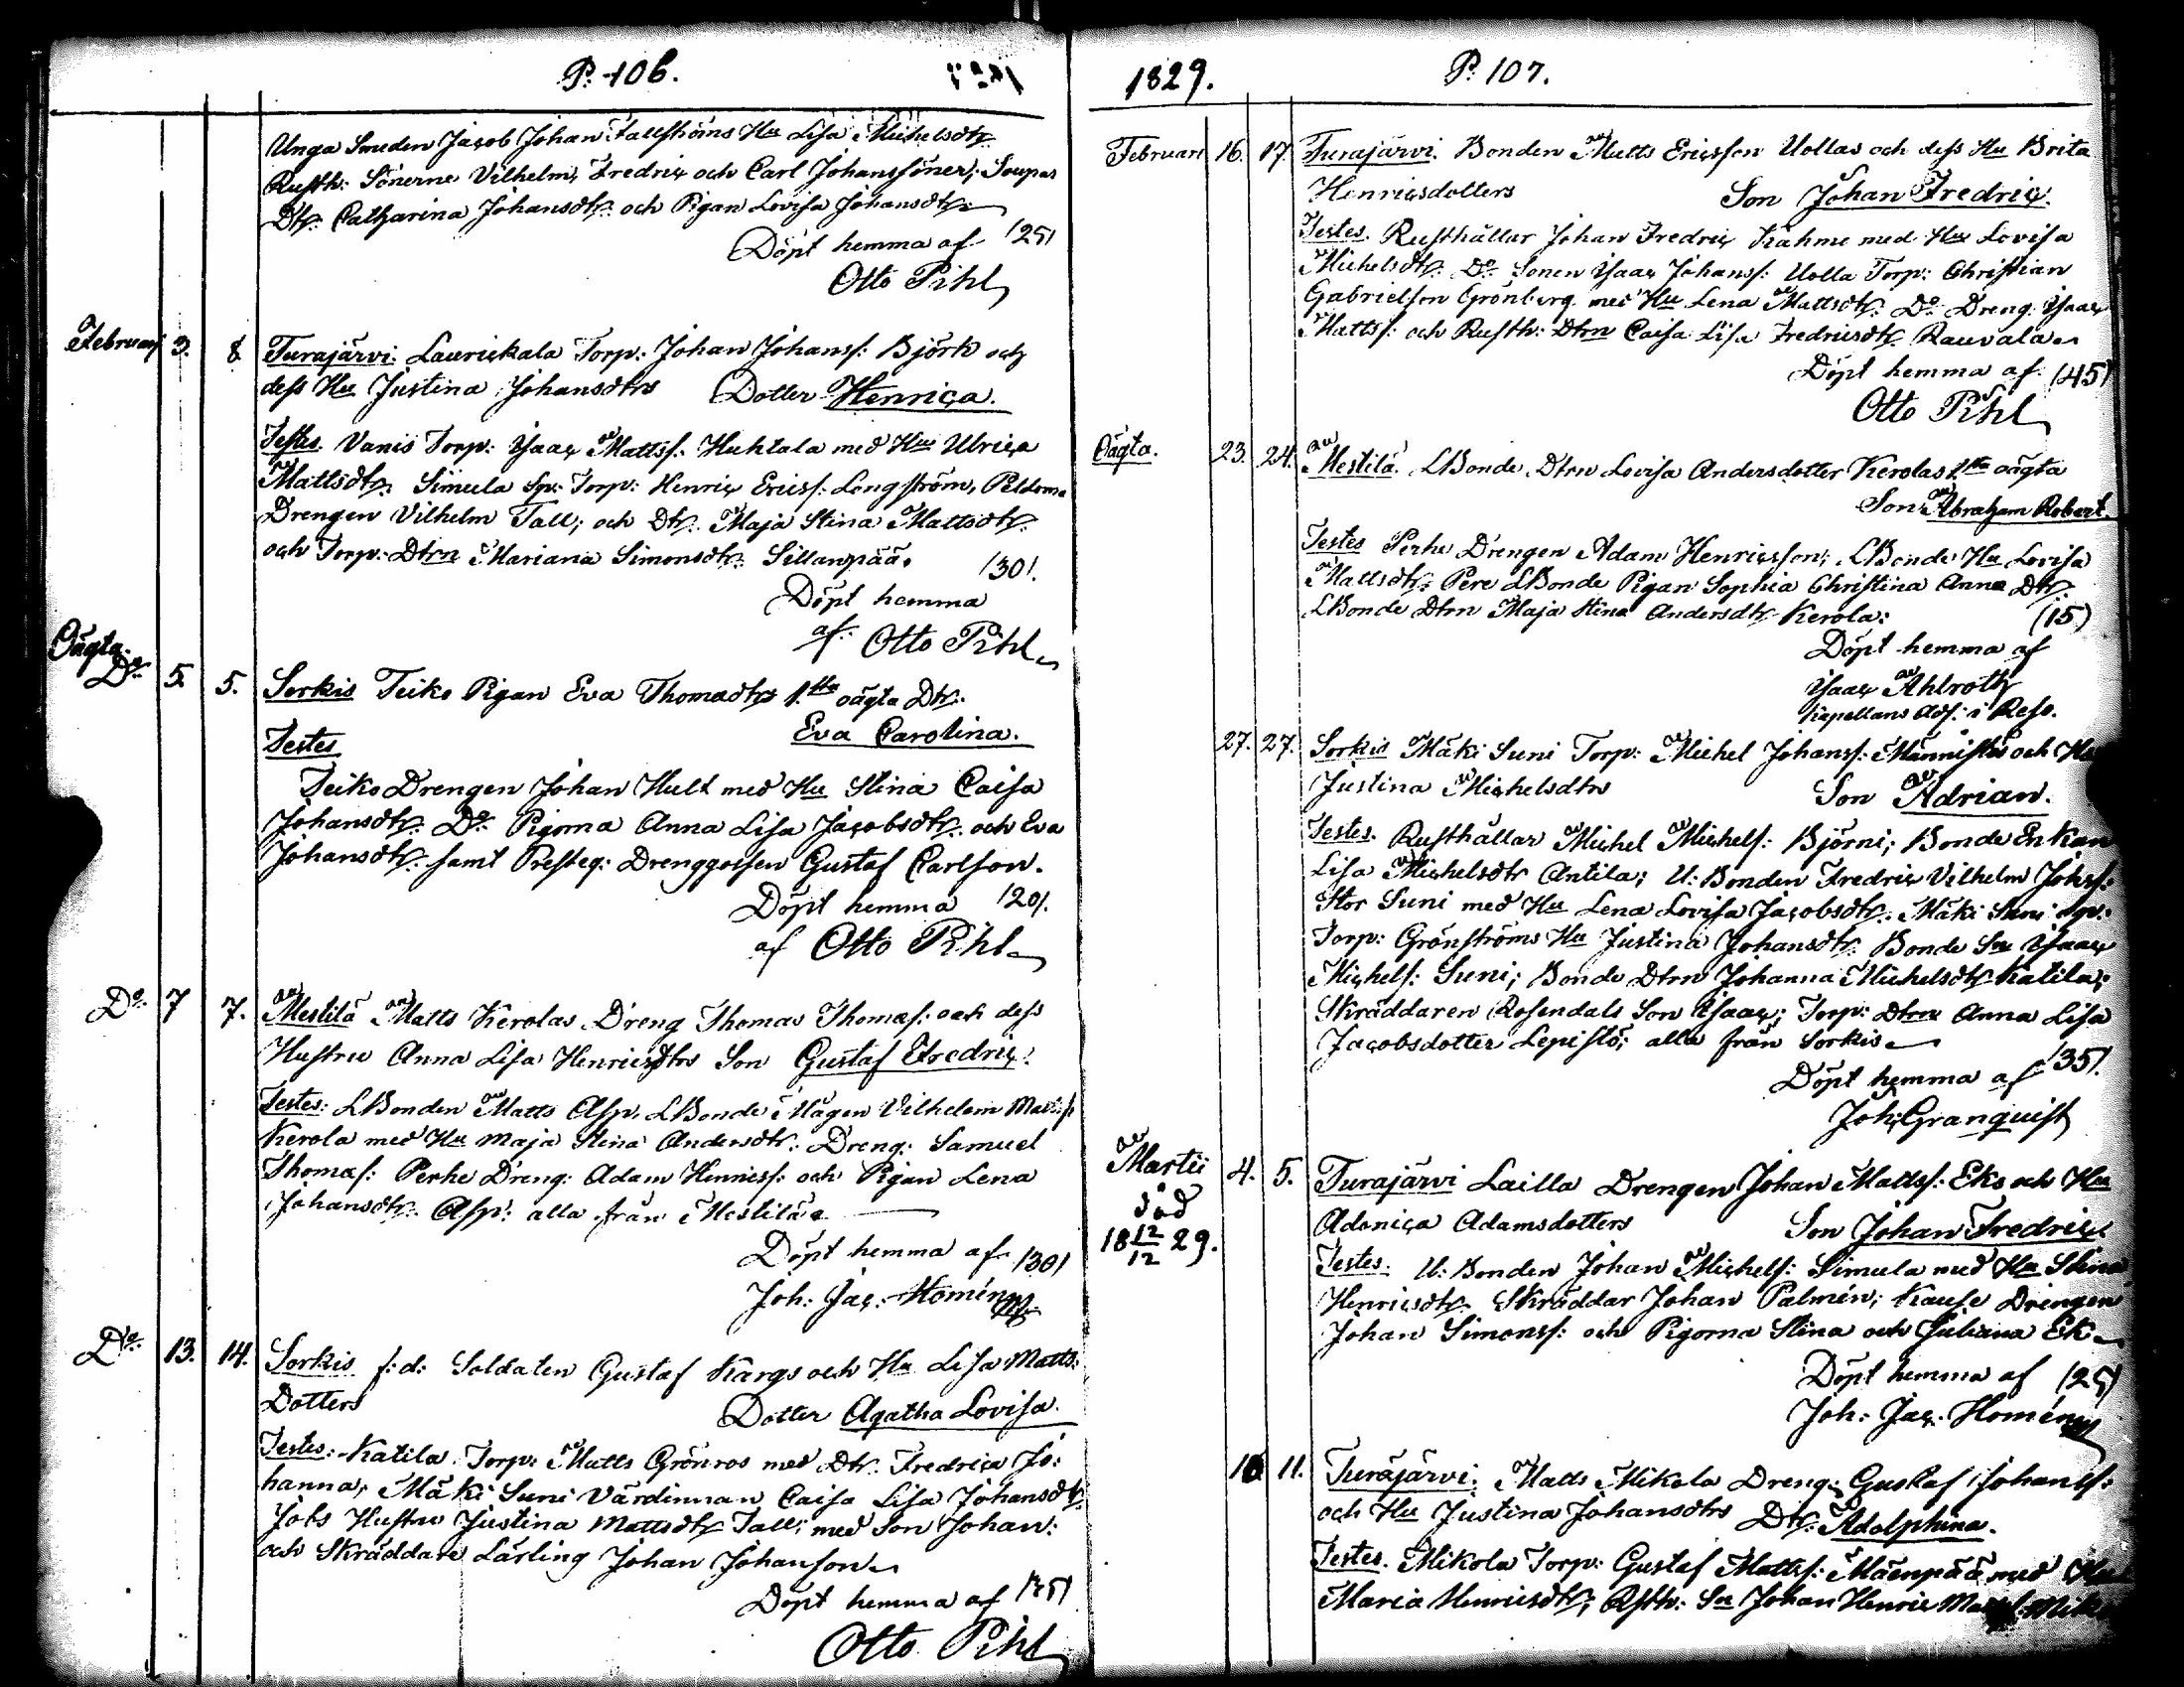 P. 106.
Unga Smeden Jacob Johan Fallströms Hu Lisa Michelsdtr
Rusth: Sönerne Vilhelm, Fredric och Carl Johanssöner; Soupas
Dtr. Catharina Johansdtr. och Pigan Lovisa Johansdtr.
Döpt hemma af /25/
Otto Pihl
Februari 3. 8 Turajärvi. Laurickala Torp: Johan Johanss: Björk och
dess Hu Justina Johansdtrs Dotter Henrica.
Testes. Vanis Torp: Isaac Mattss: Huhtala med Hu Ulrica
Mattsdtr. Simula Torp: Henric Ericss: Longström,
Drengen Vilhelm Tall; och Dtr. Maja Stina Mattsdtr.
och Torp: Dtrn Mariana Simonsdtr. Sillanpää. /30/.
Döpt hemma
af. Otto Pihl
Oägta.
Do 5. 5. Sorkis Teiko Pigan Eva Thomadtrs 1.sta oägta Dtr.
Eva Carolina.
Testes
Teiko Drengen Johan Hult med Hu Stina Caisa
Johansdtr. Do Pigorna Anna Lisa Jacobsdtr. och Eva
Johansdtr. samt Presteg: Drenggossen Gustaf Carlson.
Döpt hemma /20/.
af Otto Pihl
Do 7 7. Mestilä Matts Kerolas Dreng Thomas Thomass: och dess
Hustru Anna Lisa Henricsdtrs Son Gustaf Fredric.
Testes: LBonden Matts Asp. LBonde Mågen Vilhelm Matss:
Kerola med Hu Maja Stina Andersdtr. Dreng: Samuel
Thomas: Perhe Dreng: Adam Henricss: och Pigan Lena
Johansdtr. Asp: alla från Mestilä
Döpt hemma af /30/
Joh: Jac: Homén
Do 13. 14. Sorkis f: d: Soldaten Gustaf Kargs och Hu Lisa Matts:
Dotters Dotter Agatha Lovisa.
Testes: Katila Torp: Matts Grönros med Dtr. Fredrica Jo:
hanna, Mäki Suni Värdinnan Caisa Lisa Johansdtr.
Jobs Hustru Justina Mattsdtr Tall; med Son Johan:
och Skräddare Lärling Johan Johanson
Döpt hemma af
Otto Pihl
1829. P. 107.
Februari 16. 17. Turajärvi. Bonden Matts Ericsson Uollas och dess Hu Brita
Henricsdotters Son Johan Fredric.
Testes. Rusthållar Johan Fredric Kahme med Hu Lovisa
Michelsdtr. Do Sonen Isaac Johanss: Uolla Torp: Christian
Gabrielson Grönberg med Hu Lena Mattsdtr. Do Dreng: Isaac
Mattss: och Rusth: Dtrn Caisa Lisa Fredricsdtr. Rauvala
Döpt hemma af /45/
Otto Pihl
Oägta. 23. 24. Mestilä LBonde Dtrn Lovisa Andersdotter Kerolas 1.sta oägta
Son Abraham Robert.
Testes Perhe Drengen Adam Henricsson; LBonde Hu Lovisa
Mattsdtr. Pere LBonde Pigan Sophia Christina Anna Dtr.
LBonde Dtrn Maja Stina Andersdtr Kerola: (15)
Döpt hemma af
Isaac Ahlroth
Kapellans Adj: i Reso.
27. 27. Sorkis Mäki Suni Torp: Michel Johanss: Männistös och Hu
Justina Michelsdtrs Son Adrian.
Testes. Rusthållar Michel Michels: Björni; Bonde Enkan
Lisa Michelsdtr Antila; U: Bonden Fredric Vilhelm Johss:
Stor Suni med Hu Lena Lovisa Jacobsdtr. Mäki Suni
Torp: Grönströms Hu Justina Johansdtr. Bonde Sn Isaac
Michels: Suni; Bonde Dtrn Johanna Michelsdtr Katila;
Skräddaren Rosendals Son Isaac; Torp: Dtrn Anna Lisa
Jacobsdotter Lepistö; alla från Sorkis
Döpt hemma af /35/.
Joh: Granquist
Martii 4. 5. Turajärvi Lailla Drengen Johan Mattss: Eks och Hu
död
18 12/12 29.
Adonica Adamsdotters Son Johan Fredric
Testes. U: Bonden Johan Michels: Simula med Hu Stina
Henricsdtr. Skräddar Johan Palmén; Kause Drengen
Johan Simonss: och Pigorna Stina och Juliana Ek
Döpt hemma af /25/
Joh: Jac: Homén
10 11. Turajärvi. Matts Mikola Dreng: Gustaf Johanss:
och Hu Justina Johansdtrs Dtr. Adolphina.
Testes. Mikola Torp: Gustaf Mattss: Mäenpää med Hu
Maria Henricsdtr; Rsth: Sn Johan Henric